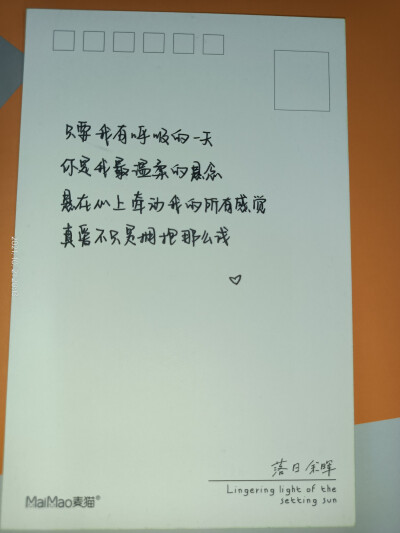 只要我有呼吸的一天
你是我最温柔的悬念
悬在心上牵动我的所有感觉
真爱不只是拥抱那么浅
♡
落日余晖
Lingering light of the
setting sun
MaiMao麦猫®